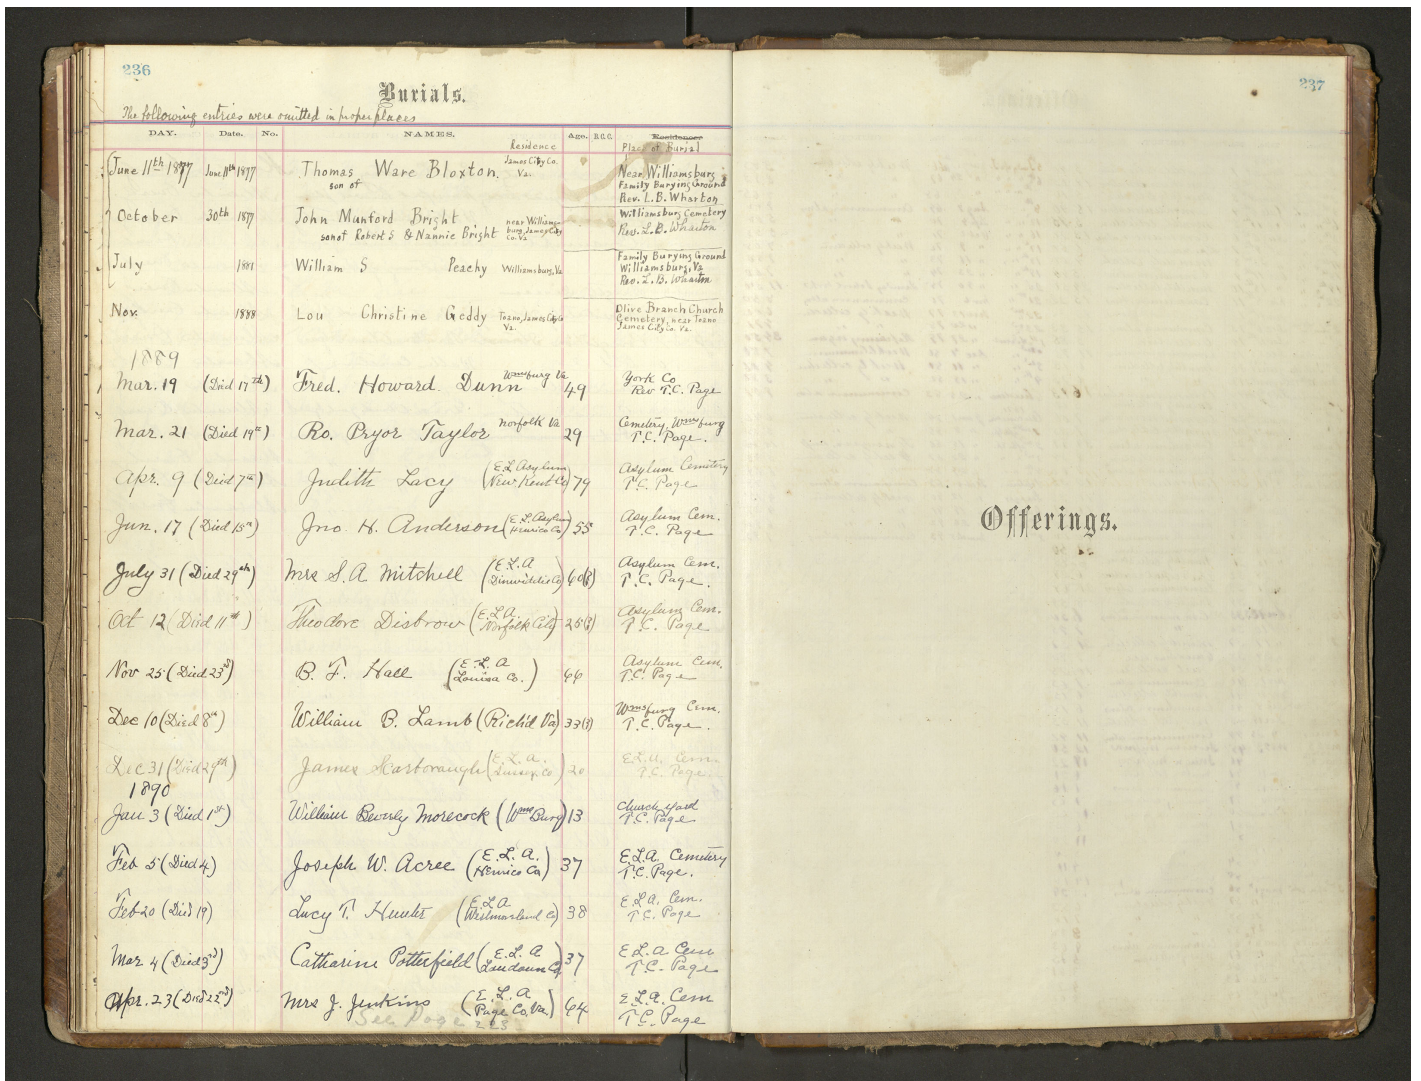 236
Burials.
The following entries were omitted in proper places
DAY. Date. No. NAMES. Residence Age. B.C.C. Residence
Place of Burial
June 11th 1877 June 11th 1877 Thomas Ware Bloxton. James City Co. Va. Near Williamsburg
son of Family Burying Ground
Rev. L. B. Wharton
October 30th 1877 John Munford Bright near Williams- Williamsburg Cemetery
son of Robert S & Nannie Bright burg, James City Co. Va Rev. L. B. Wharton
July 1881 William S Peachy Williamsburg, Va Family Burying Ground
Williamsburg, Va
Rev. L. B. Wharton
Nov. 1888 Lou Christine Geddy Toano, James City Co Va. Olive Branch Church
Cemetery, near Toano
James City Co. Va
1889
Mar. 19 (Died 17th) Fred. Howard Dunn Wmsburg Va 49 York Co
Rev T. C. Page
Mar. 21 (Died 19th) Ro. Pryor Taylor Norfolk Va 29 Cemetery, Wmsburg
T. C. Page.
Apr. 9 (Died 7th) Judith Lacy (E. L. Asylum New Kent Co) 79 Asylum Cemetery
T. C. Page
Jun. 17 (Died 15th) Jno. H. Anderson (E. L. Asylum Henrico Co) 55 Asylum Cem.
T. C. Page
July 31 (Died 29th) Mrs S. A Mitchell (E. L. A Dinwiddie Co) 60(?) Asylum Cem.
T. C. Page.
Oct 12 (Died 11th) Theodore Disbrow (E. L. A. Norfolk City) 25(?) Asylum Cem.
T. C. Page
Nov 25 (Died 23d) B. F. Hall (E. L. A Louisa Co.) 66 Asylum Cem.
T. C. Page
Dec 10 (Died 8th) William B. Lamb (Rich'd Va) 33(?) Wmsburg Cem.
T. C. Page.
Dec 31 (Died 29th) James Scarborough (E. L. A. Sussex Co) 20 E. L. A. Cem.
T. C. Page
1890
Jan 3 (Died 1st) William Beverly Morecock (WmsBurg) 13 Church yard
T. C. Page
Feb 5 (Died 4) Joseph W. Acree (E. L. A. Henrico Co) 37 E. L. A. Cemetery
T. C. Page.
Feb 20 (Died 19) Lucy T. Hunter (E. L. A Westmorland Co) 38 E. L. A. Cem.
T. C. Page
Mar 4 (Died 3d) Catharine Potterfield (E. L. A Loudoun Co) 37 E. L. A Cem
T. C. Page
Apr. 23 (Died 22nd) Mrs J. Jenkins (E. L. A Page Co. Va.) 64 E. L. A. Cem
T. C. Page
See Page
237
Offerings.